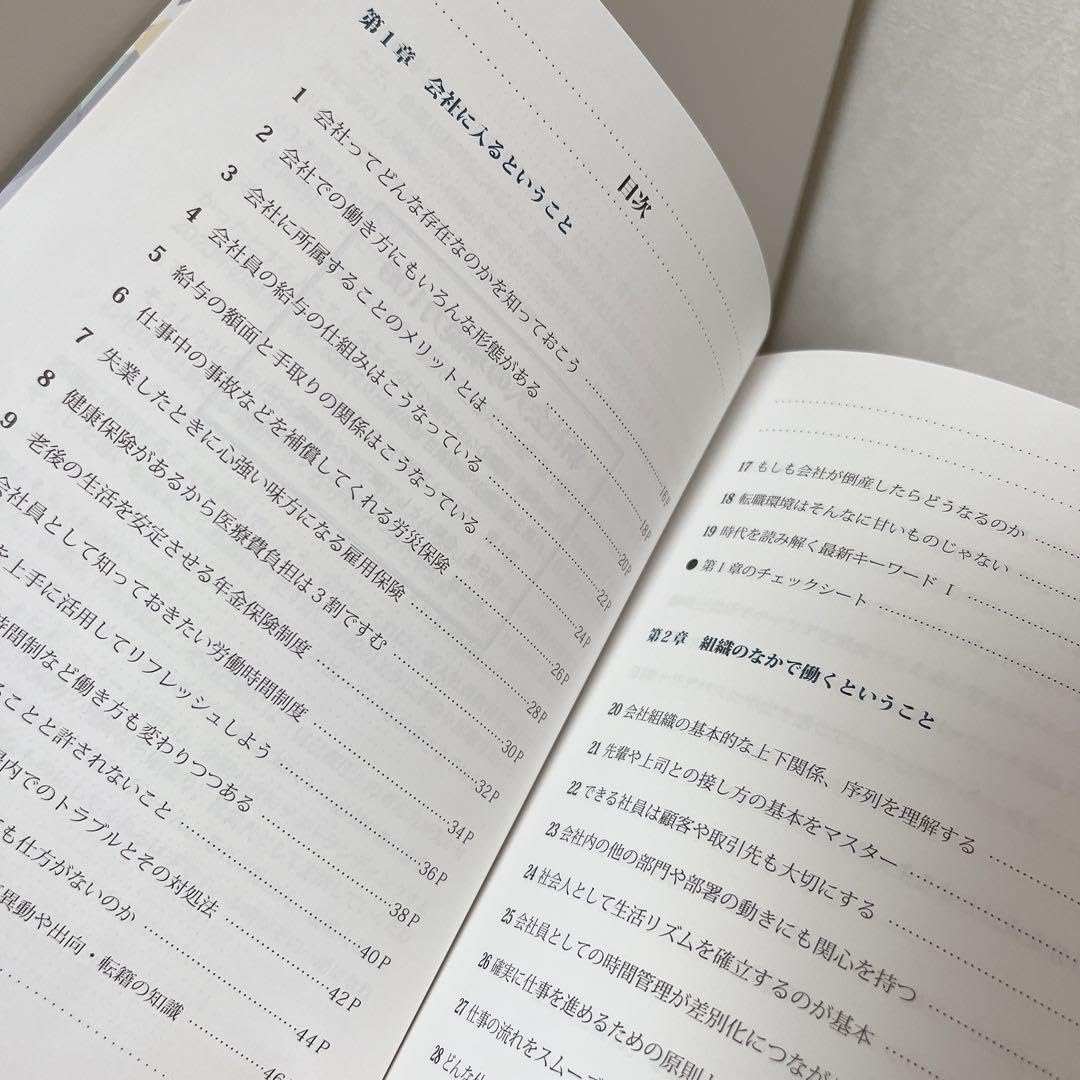 目次
第1章 会社に入るということ
1 会社ってどんな存在なのかを知っておこう……16P
2 会社での働き方にもいろんな形態がある……18P
3 会社に所属することのメリットとは……20P
4 会社員の給与の仕組みはこうなっている……22P
5 給与の額面と手取りの関係はこうなっている……24P
6 仕事中の事故などを補償してくれる労災保険……26P
7 失業したときに心強い味方になる雇用保険……28P
8 健康保険があるから医療費負担は3割ですむ……30P
9 老後の生活を安定させる年金保険制度……32P
会社員として知っておきたい労働時間制度……34P
を上手に活用してリフレッシュしよう……36P
時間制など働き方も変わりつつある……38P
ることと許されないこと……40P
内でのトラブルとその対処法……42P
も仕方がないのか……44P
異動や出向・転籍の知識……46
17 もしも会社が倒産したらどうなるのか……
18 転職環境はそんなに甘いものじゃない……
19 時代を読み解く最新キーワード Ⅰ……
●第1章のチェックシート……
第2章 組織のなかで働くということ
20 会社組織の基本的な上下関係、序列を理解する……
21 先輩や上司との接し方の基本をマスター……
22 できる社員は顧客や取引先も大切にする……
23 会社内の他の部門や部署の動きにも関心を持つ……
24 社会人として生活リズムを確立するのが基本……
25 会社員としての時間管理が差別化につなが
26 確実に仕事を進めるための原則
27 仕事の流れをスムーズ
28 どんな